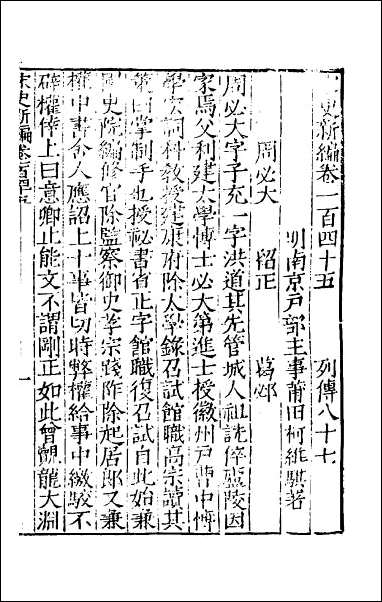 史新編卷一百四十五 列傳八十七
明南京戸部主事莆田柯維騏著
周必大 留正 葛邲
周必大字子充一字洪道其先管城人祖詵倅廬陵因
家焉父利建太學博士必大第進士授徽州戸曹中博
學宏詞科教授建康府除太學錄召試館職高宗讀其
策曰掌制手也授祕書省正字館職復召試自此始兼
國史院編修官除監察御史孝宗踐阼除起居郎又兼
權中書舍人應詔上十事皆切時弊權給事中繳駁不
辟權倖上曰意卿止能文不謂剛正如此曾覿龍大淵
宋史新編卷一百四十五 一